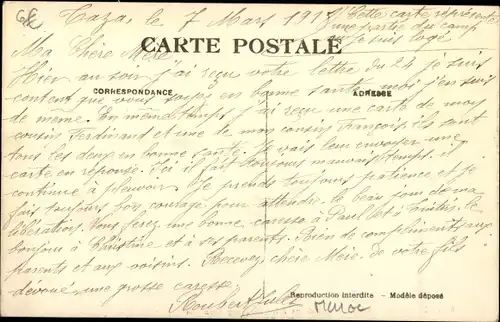 6€
Taza, le 7 Mars 191
Cette carte représente
une partie du camp
où je suis logé
CARTE POSTALE
Ma Chère Mère
Hier au soir j'ai reçu votre lettre du 24 je suis
CORRESPONDANCE
ADRESSE
content que vous soyez en bonne santé moi j'en suis
de même. En même temps j'ai reçu une carte de mon
cousin Ferdinand et une de mon cousin François ils sont
tous les deux en bonne santé. Je vais leur envoyer une
carte en réponse. Ici il fait toujours mauvais temps il
continue à pleuvoir. Je prends toujours patience et je
fais toujours bon courage pour attendre le beau jour de ma
libération. Vous ferez une bonne caresse à Paul et à
bonjour à Christine et à ses parents. Bien de compliments aux
parents et aux voisins. Recevez, chère Mère, de votre fils
dévoué, une grosse caresse
Reproduction interdite - Modèle déposé
Maroc